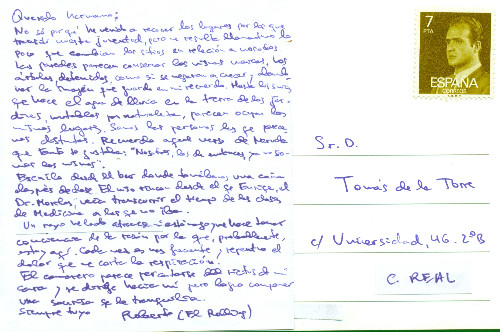 Querido hermano:
No sé por qué he venido a recorrer los lugares por los que
nuestra juventud, pero me resulta
poco que cambian los sitios en relación a nosotros
Las paredes parecen conservar las mismas marcas, los
árboles detenidos, como si se negaran a crecer y
por la imagen que guardo en mi recuerdo. Hasta los
que hace el agua de lluvia en la tierra de los jar-
dines, mutables por naturaleza, parecen ocupar los
mismos lugares. Somos las personas las que parece-
mos distintas. Recuerdo aquel verso de Neruda
que tanto te gustaba: "Nosotros, los de entonces, ya no so-
mos los mismos".
Escribo desde el bar donde tomábamos una caña
después de clase. El mismo desde el que Enrique, el
Dr. Morales, veía transcurrir el tiempo de las clases
de Medicina a las que no iba.
Un rayo helado atraviesa mi estómago que hace tomar
consciencia de la razón por la que, probablemente,
estoy aquí. Cada vez es más frecuente y repentino el
dolor que me corta la respiración.
El camarero parece percatarse del rictus de mi
cara y se dirige hacia mí pero logro componer
una sonrisa que le tranquiliza.
Siempre tuyo Roberto (El Rolling)
7
PTA
ESPAÑA
CORREOS
Sr. D.
Tomás de la Torre
c/ Universidad, 46. 2º B
C. REAL